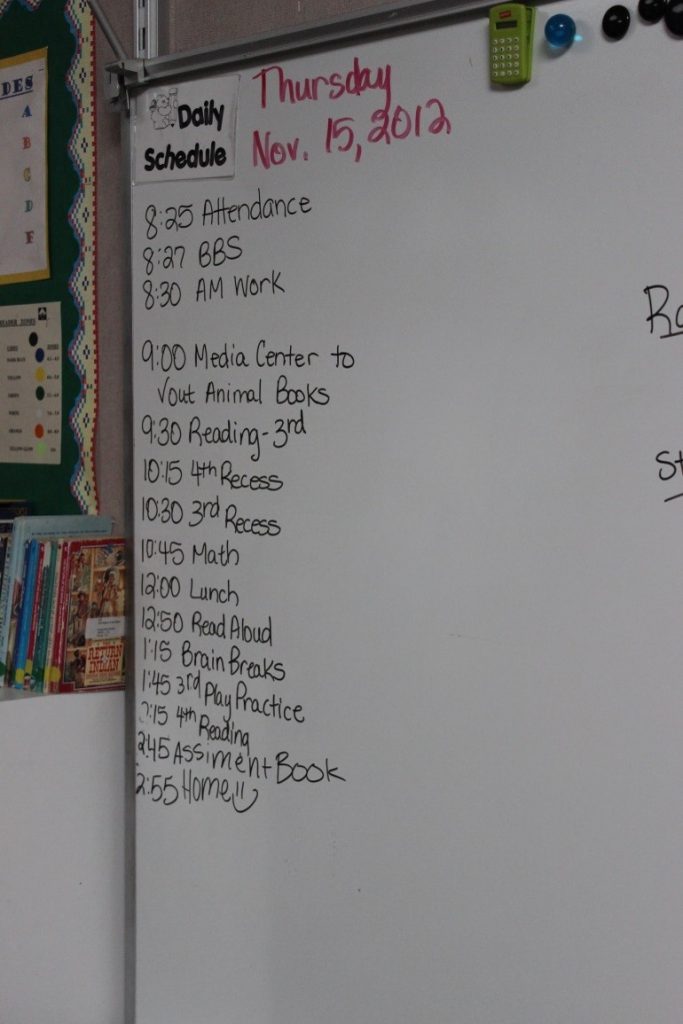 DES
A
B
C
D
F
READER ZONES
Daily
Schedule
Thursday
Nov. 15, 2012
8:25 Attendance
8:27 BBS
8:30 AM Work
9:00 Media Center to
√out Animal Books
9:30 Reading-3rd
10:15 4th Recess
10:30 3rd Recess
10:45 Math
12:00 Lunch
12:50 Read Aloud
1:15 Brain Breaks
1:45 3rd Play Practice
2:15 4th Reading
2:45 Assiment Book
2:55 Home
Ro
St
RETURN
INDIAN